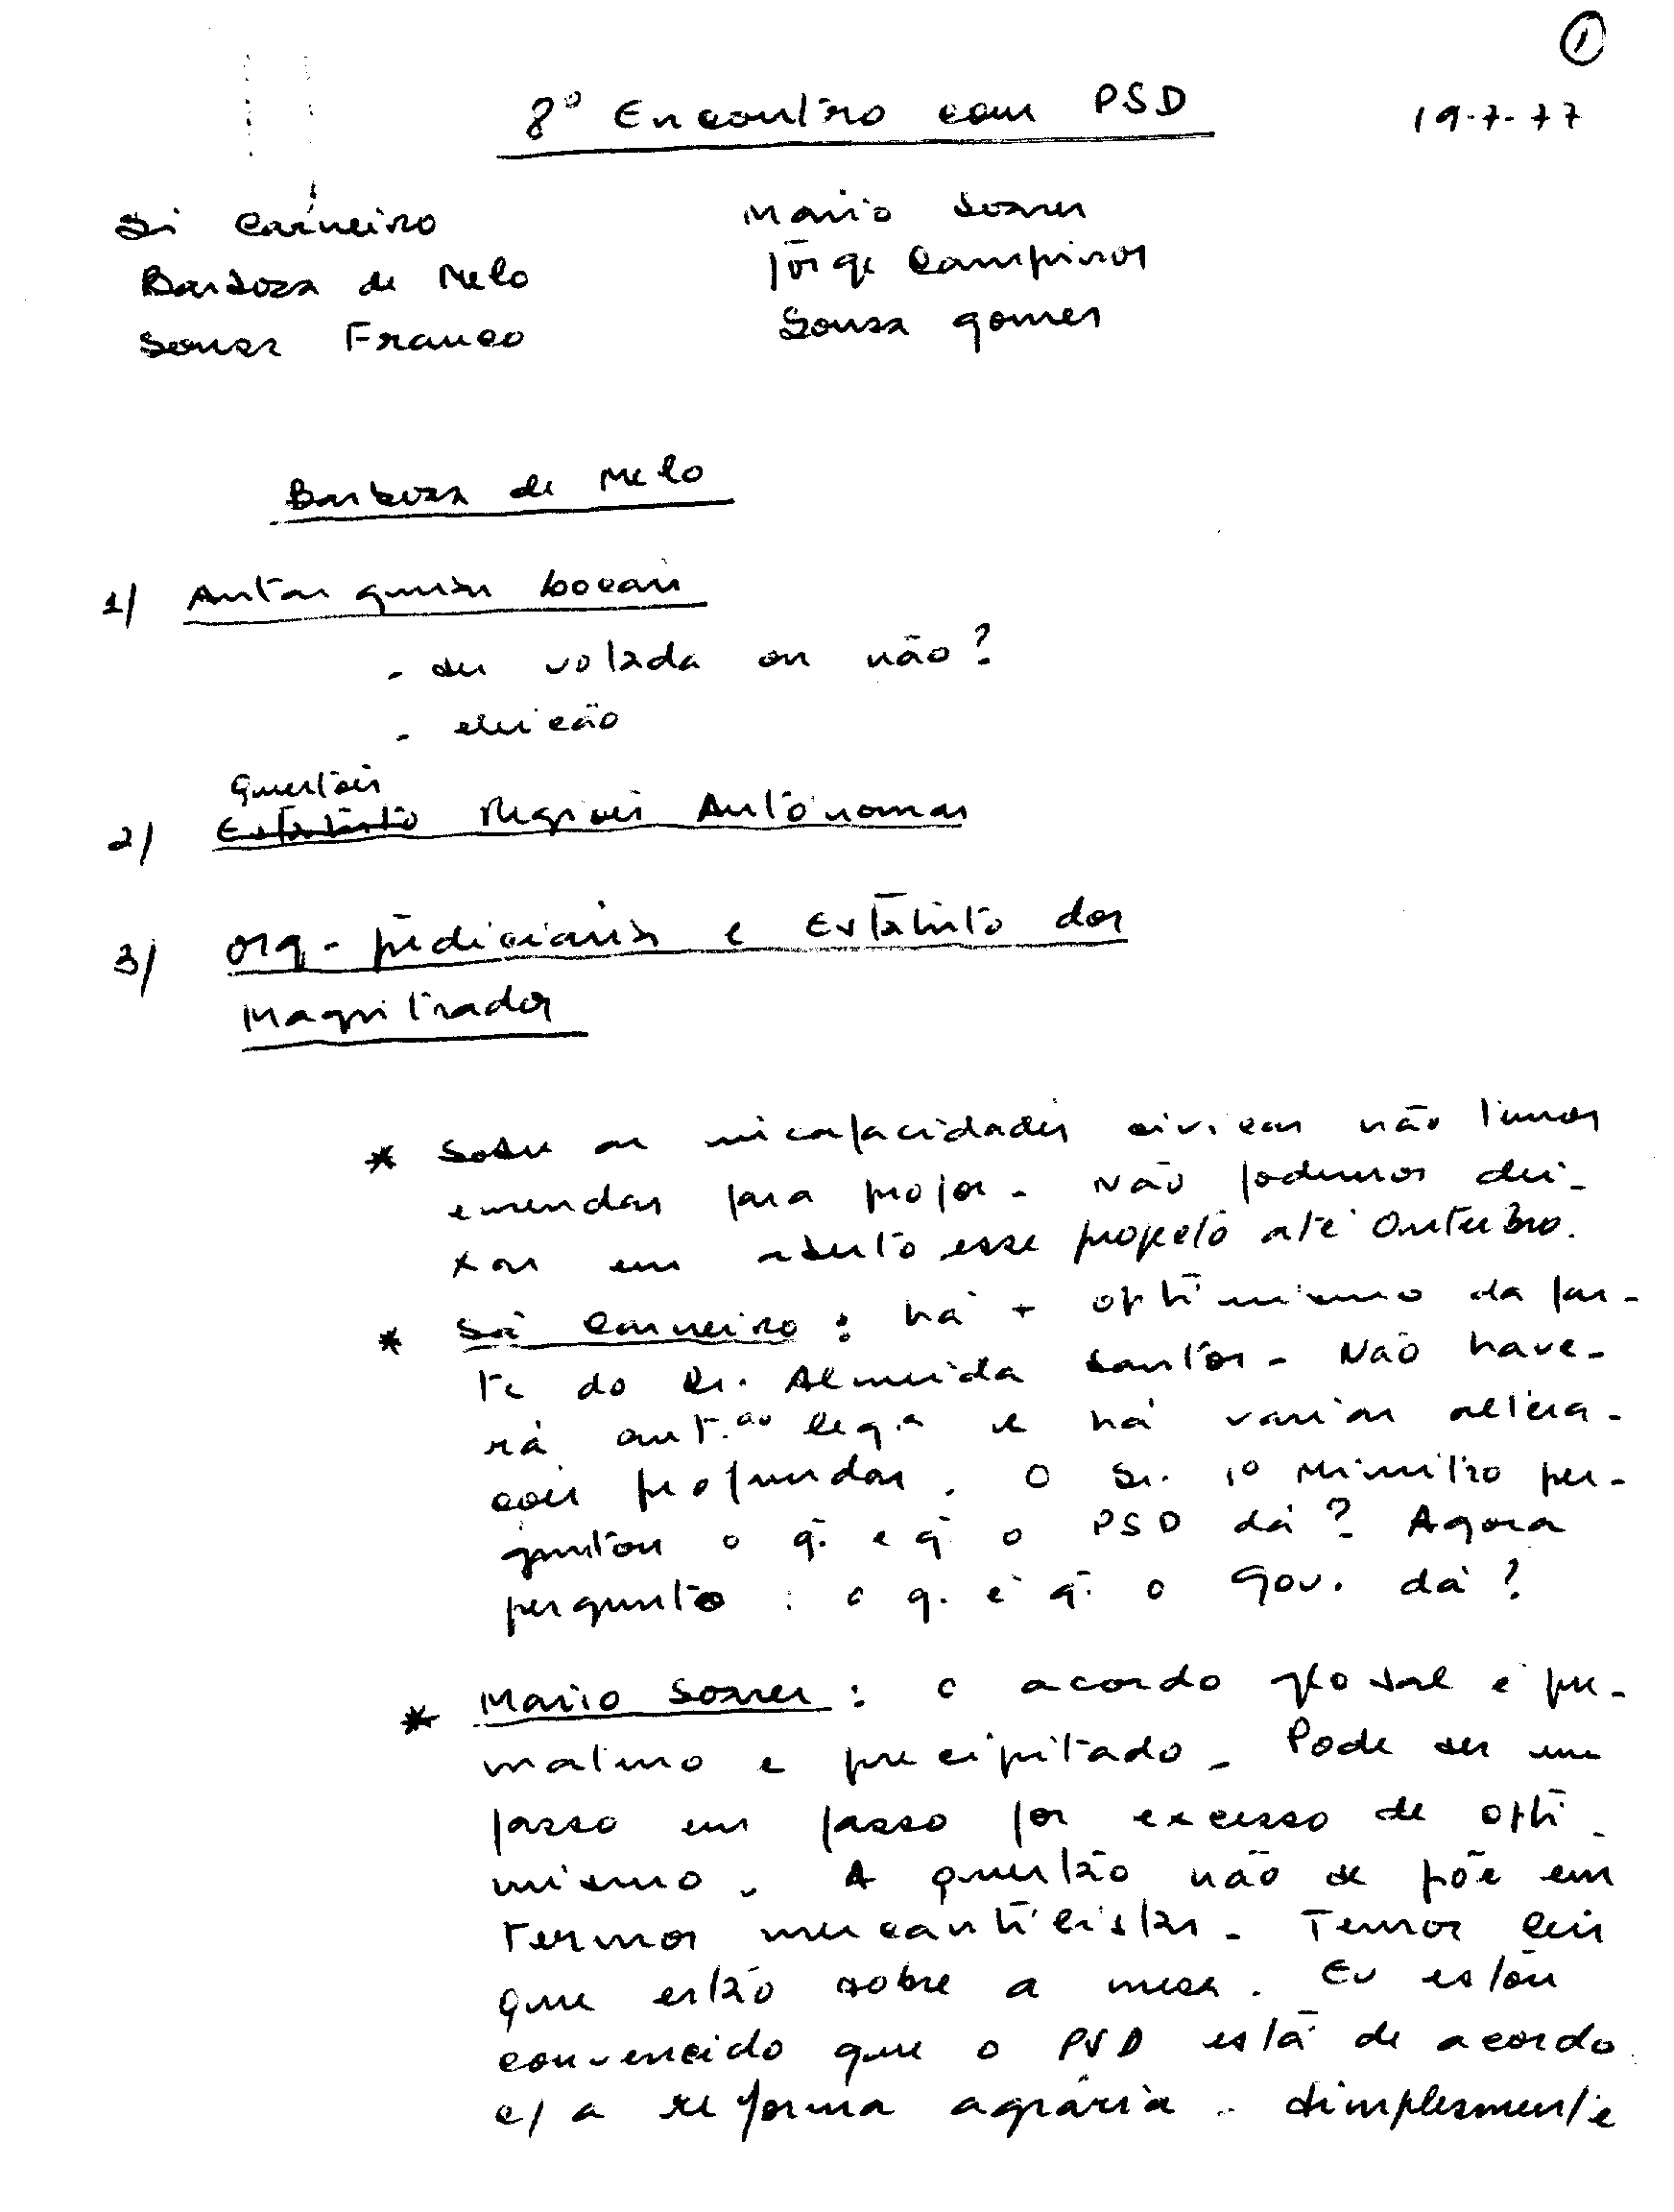 1
8º Encontro com PSD
19-7-77
Sá Carneiro
Mario Soares
Barboza de Melo
Jorge Campinos
Sousa Franco
Sousa Gomes
Barboza de Melo
1/ Autarquias locais
- ser votada ou não?
- eleição
Questões
2/ Estatuto Regiões Autónomas
3/ Org. judiciária e Estatuto dos
Magistrados
* Sobre as incapacidades civicas não temos
emendas para propor - Não podemos dei-
xar em aberto esse projeto até Outubro.
* Sá Carneiro: há + optimismo da par-
te do Dr. Almeida Santos - Não have-
rá aut.ão leg.a e há varias altera-
ções profundas. O Sr. 1º Ministro per-
guntou o q. é q. o PSD dá? Agora
pergunto: o q. é q. o Gov. dá?
* Mario Soares: o acordo global é pre-
maturo e precipitado - Pode ser um
passo em passo por excesso de opti-
mismo. A questão não se põe em
termos mercantilistas - Temos leis
que estão sobre a mesa. Eu estou
convencido que o PSD está de acordo
c/ a reforma agrária. Simplesmente